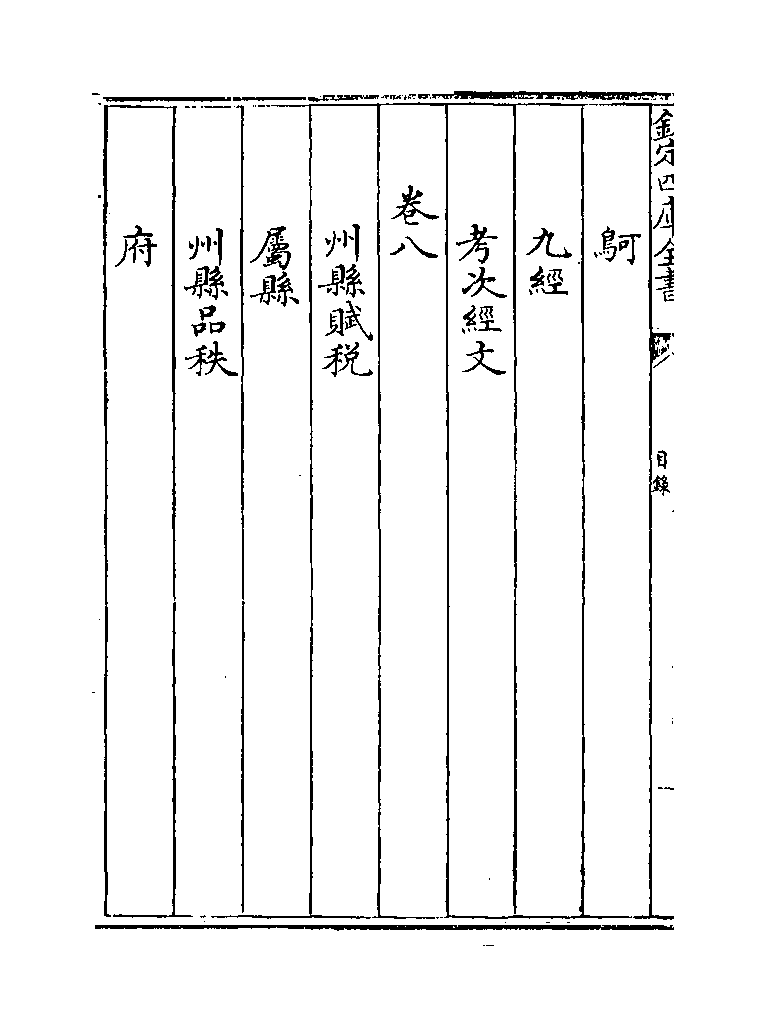 欽定四庫全書
目錄
鴚
九經
考次經文
卷八
州縣賦税
屬縣
州縣品秩
府